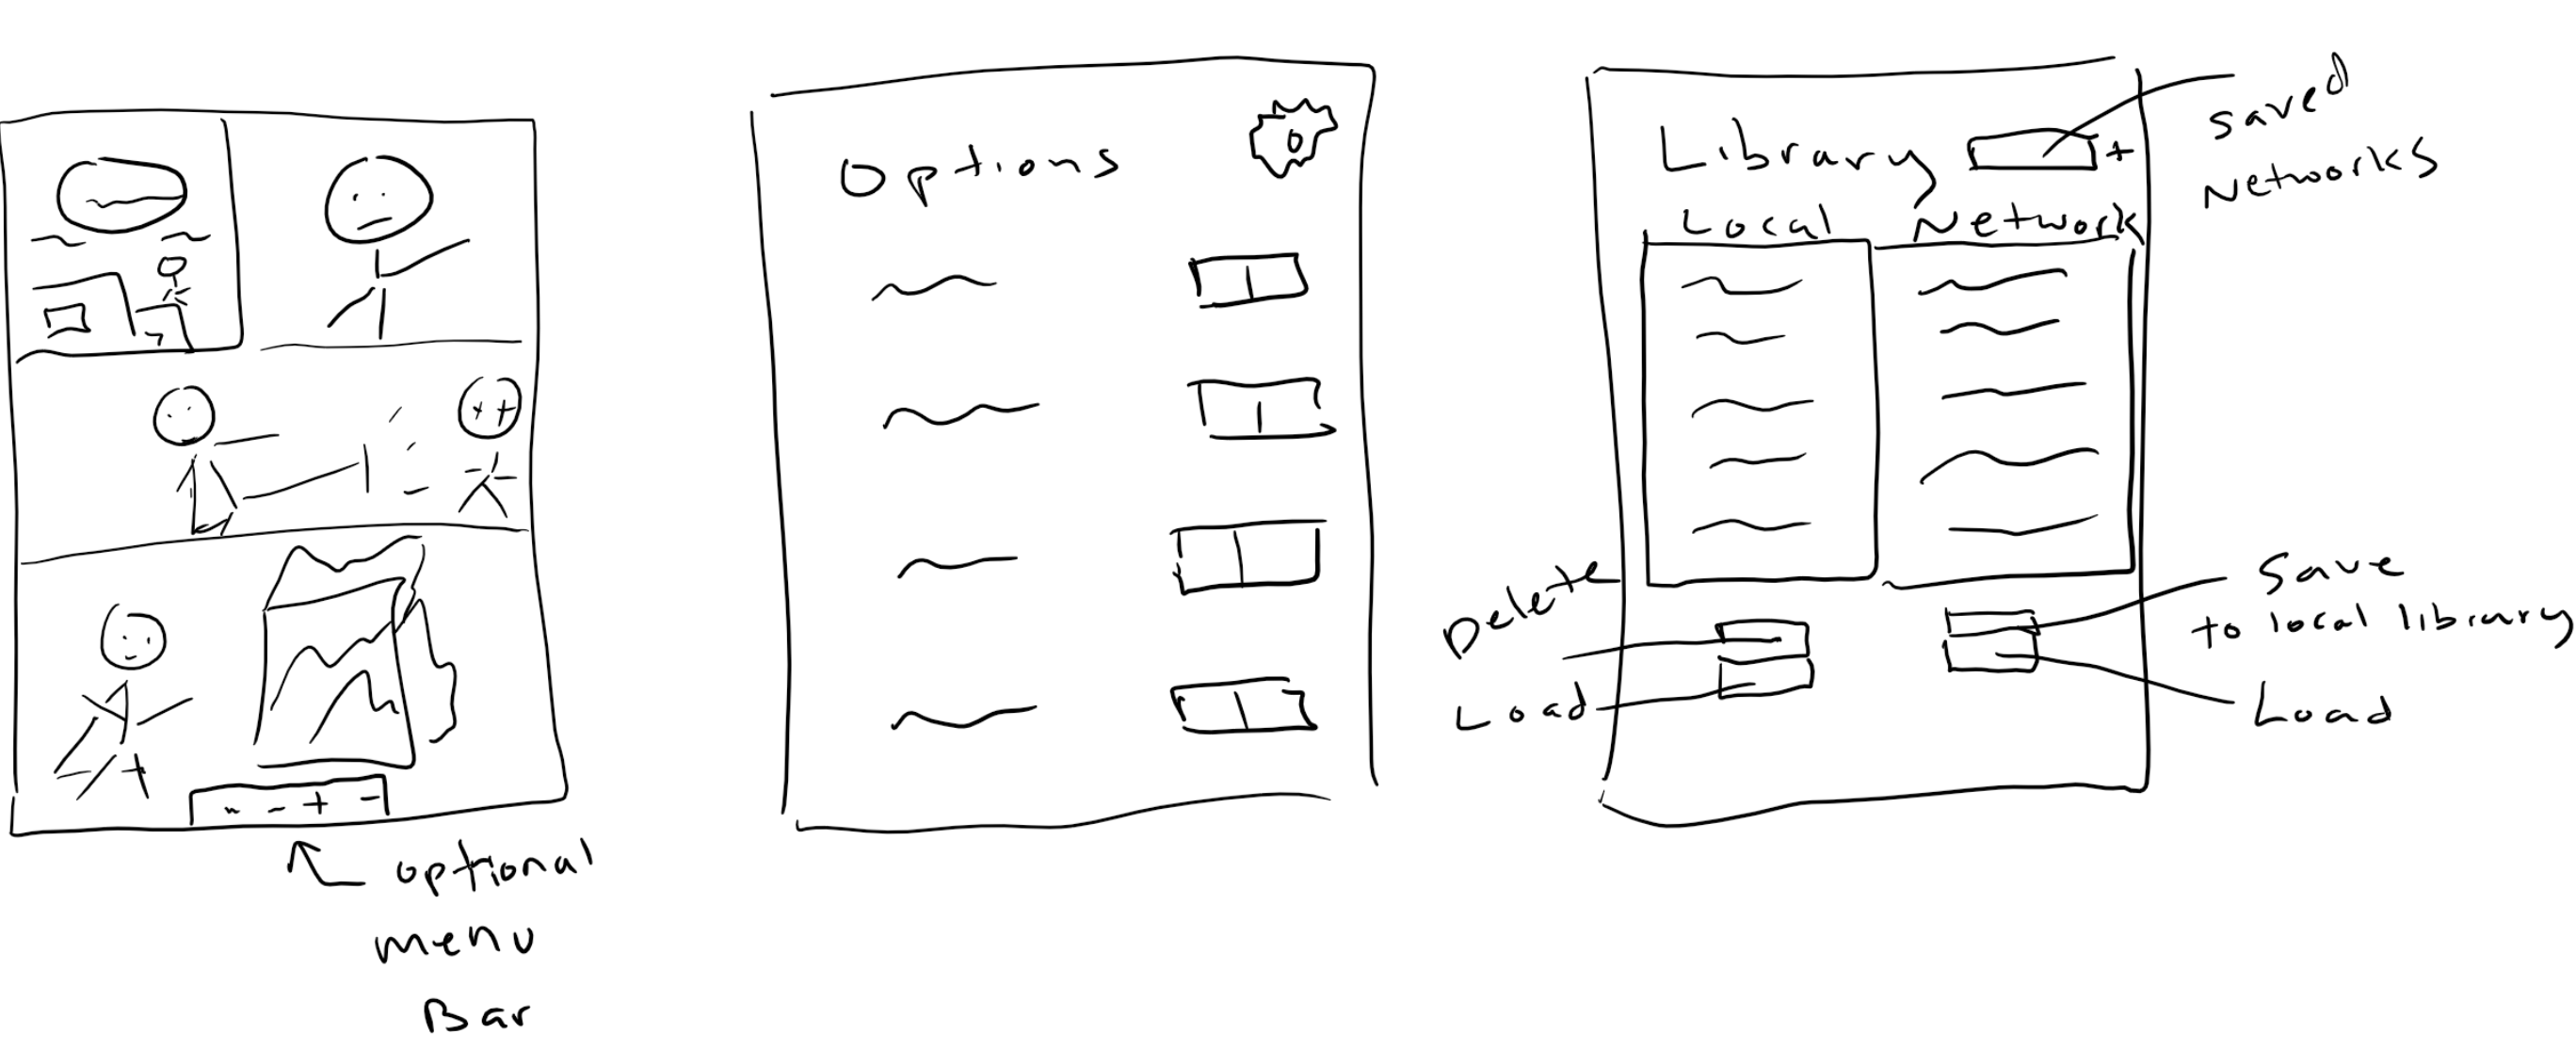 optional
menu
Bar
Options
Library +
Local Network
saved
Networks
Delete
Load
Save
to local library
Load